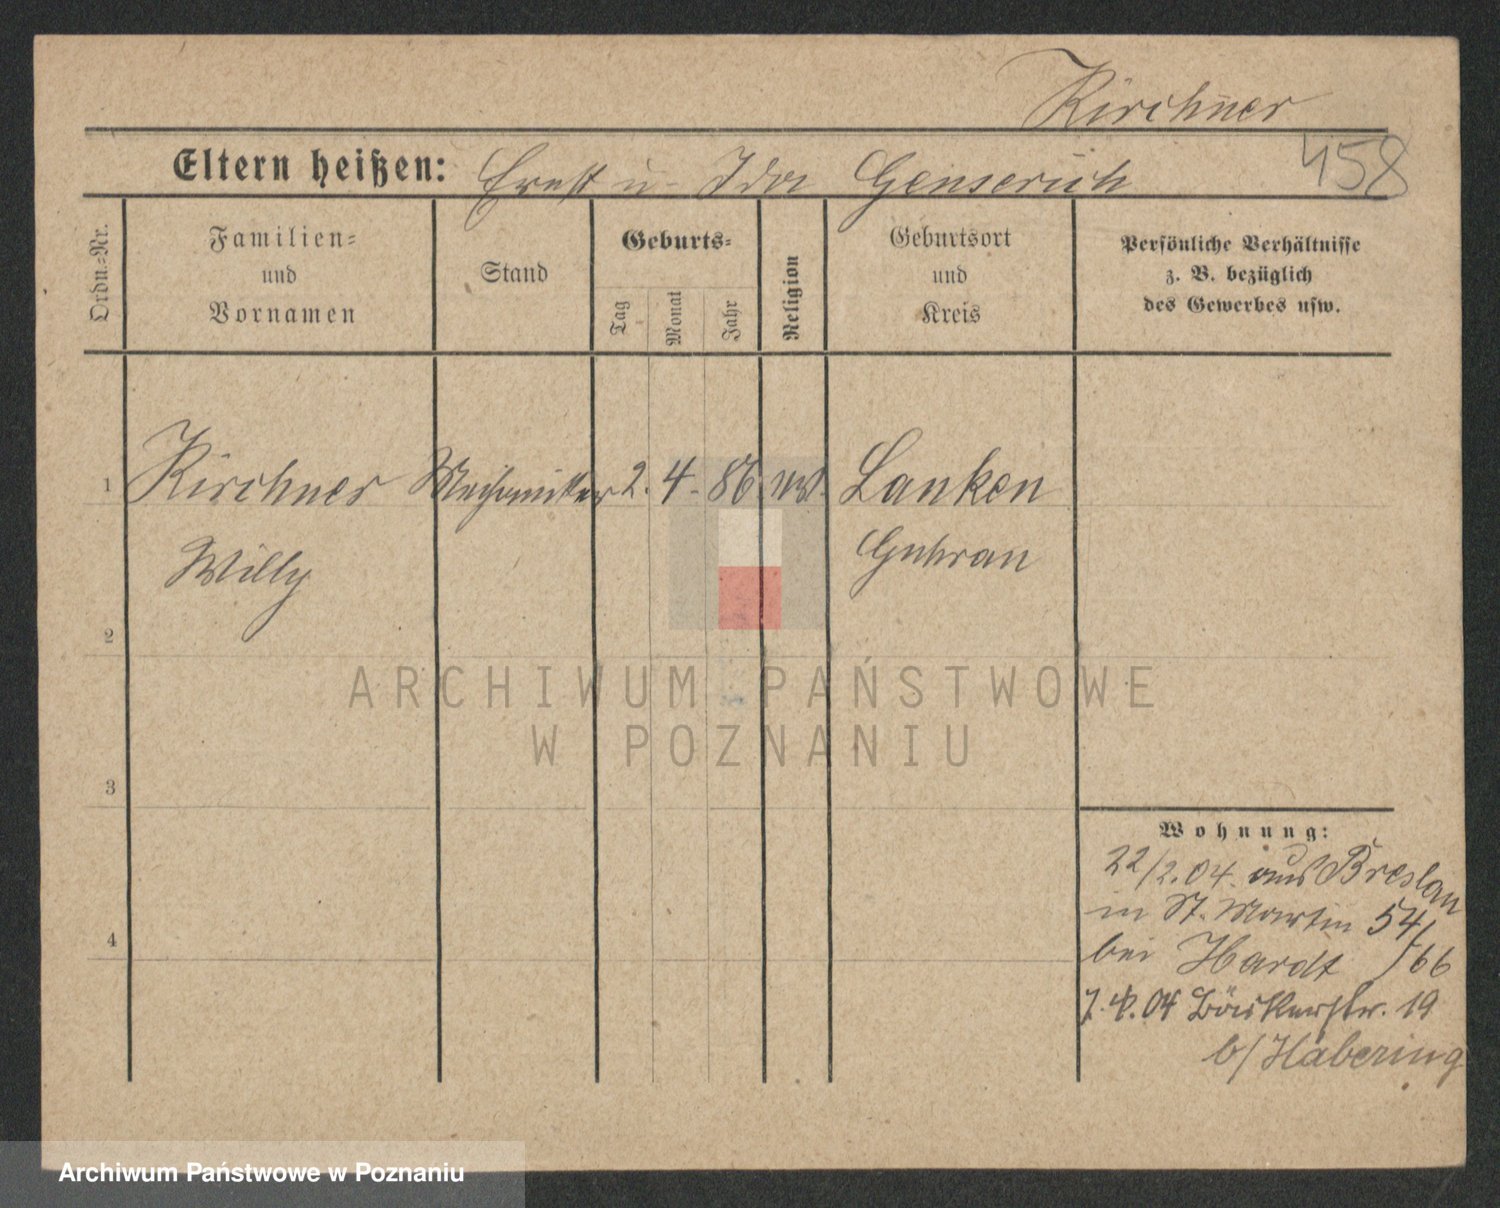 Kirchner
458
Eltern heißen: Ernst u. Ida Genserich
Ordn.=Nr.
Familien=
und
Vornamen
Stand
Geburts=
Tag
Monat
Jahr
Religion
Geburtsort
und
Kreis
Persönliche Verhältnisse
z. B. bezüglich
des Gewerbes usw.
1 Kirchner Mechaniker 2. 4. 86. ev. Lanken
Willy Guhrau
2
ARCHIWUM PAŃSTWOWE
W POZNANIU
3
Wohnung:
22/2.04. aus Breslau
in St. Martin 54/66
bei Hardt
7.4.04 Bäckerstr. 19
b/ Habering
4
Archiwum Państwowe w Poznaniu